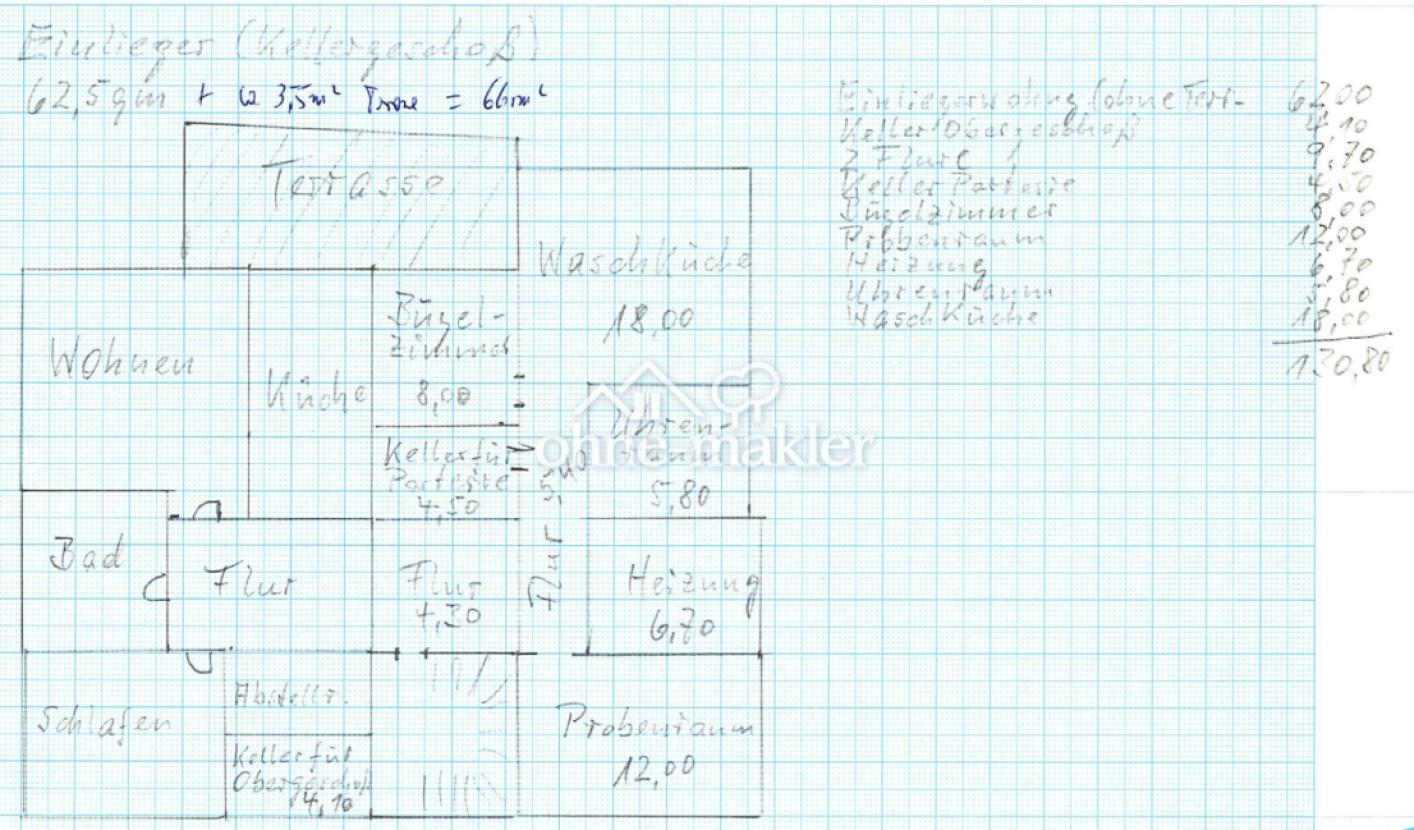 Einlieger (Kellergeschoß)
62,5qm + ca 3,5m² = 66m²
Einliegerwohng (ohne Terr- 62,00
Keller Obergeschoß 4,10
2 Flure 9,70
Keller Parterre 4,50
Bügelzimmer 8,00
Probenraum 12,00
Heizung 6,70
Uhrenraum 5,80
WaschKüche 18,00
130,80
Terrasse
WaschKüche
18,00
Wohnen
Küche
Bügel-
zimmer
8,00
Keller für
Parterre
4,50
Uhren-
raum
5,80
ohne-makler
Bad
Flur
Flur
4,30
Flur 5,40
Heizung
6,70
Schlafen
Abstellr.
Keller für
Obergeschoß
4,10
Probenraum
12,00